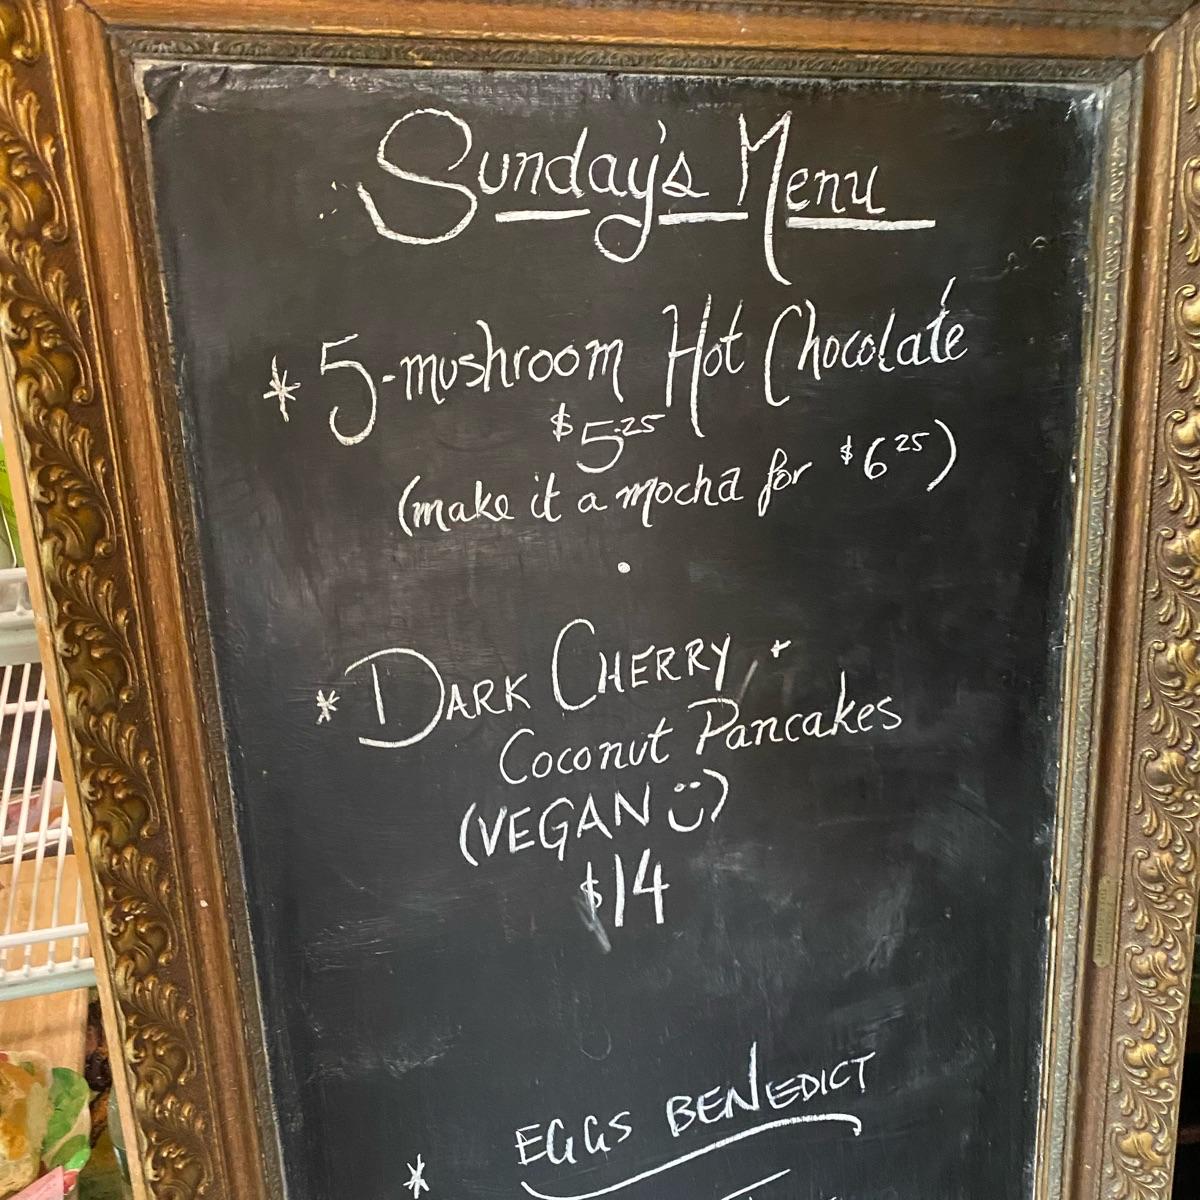 Sunday's Menu
* 5-mushroom Hot Chocolate
$5.25
(make it a mocha for $6 25)
* DARK CHERRY +
Coconut Pancakes
(VEGAN ☺)
$14
EGGS BENEDICT
*